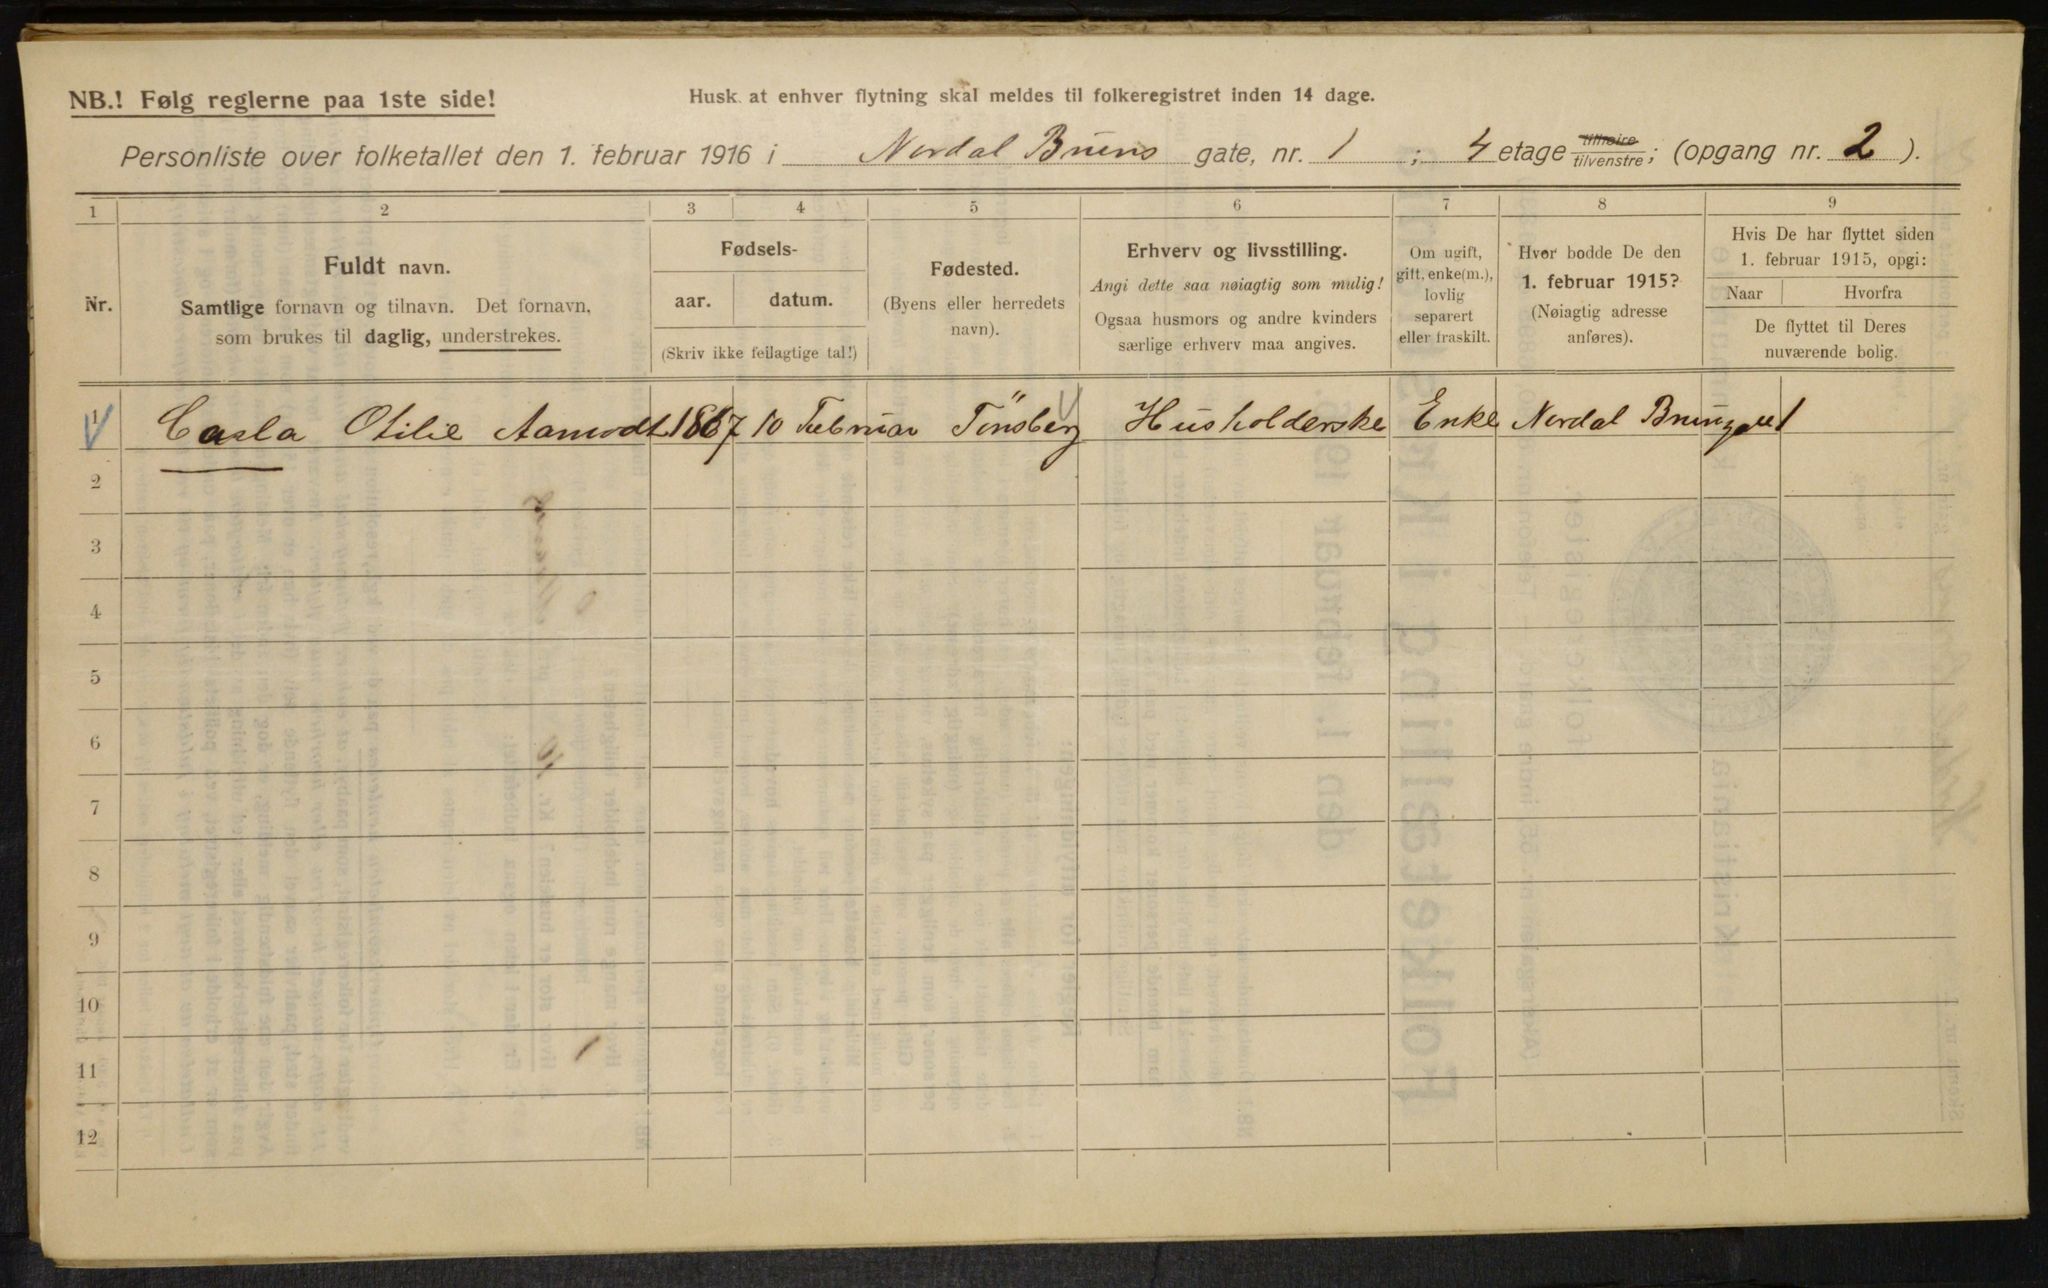 NB.! Følg reglerne paa 1ste side!
Husk at enhver flytning skal meldes til folkeregistret inden 14 dage.
Personliste over folketallet den 1. februar 1916 i Nordal Bruns gate, nr. 1 ; 4 etage tilhøire tilvenstre; (opgang nr. 2 ).
1 2 3 4 5 6 7 8 9
Nr.
Fuldt navn.
Samtlige fornavn og tilnavn. Det fornavn,
som brukes til daglig, understrekes.
Fødsels-
aar. datum.
(Skriv ikke feilagtige tal!)
Fødested.
(Byens eller herredets
navn).
Erhverv og livsstilling.
Angi dette saa nøiagtig som mulig!
Ogsaa husmors og andre kvinders
særlige erhverv maa angives.
Om ugift,
gift, enke(m.),
lovlig
separert
eller fraskilt.
Hvor bodde De den
1. februar 1915?
(Nøiagtig adresse
anføres).
Hvis De har flyttet siden
1. februar 1915, opgi:
Naar Hvorfra
De flyttet til Deres
nuværende bolig.
1 Carla Otilie Aamodt 1867 10 Februar Tönsberg Husholderske Enke Nordal Brunsgate 1
2
3
4
5
6
7
8
9
10
11
12